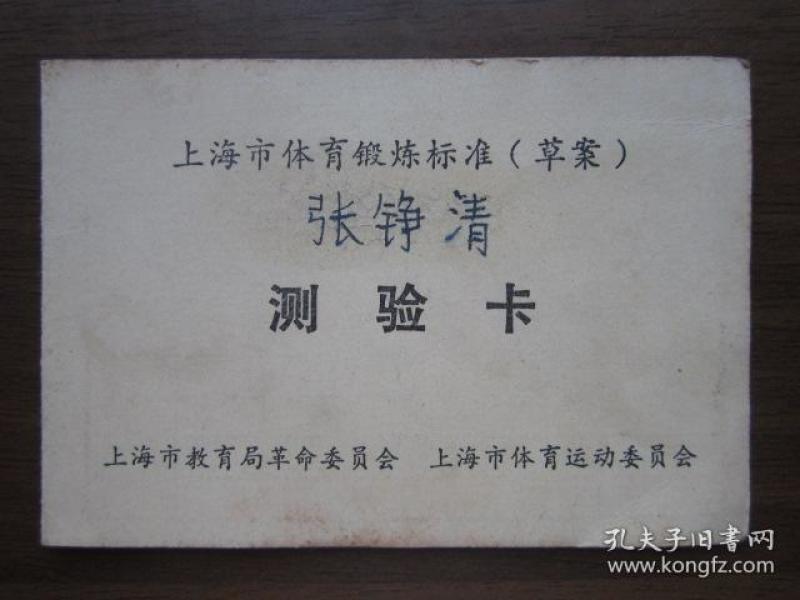 上海市体育锻炼标准(草案)
张铮清
测验卡
上海市教育局革命委员会 上海市体育运动委员会
孔夫子旧書网
www.kongfz.com